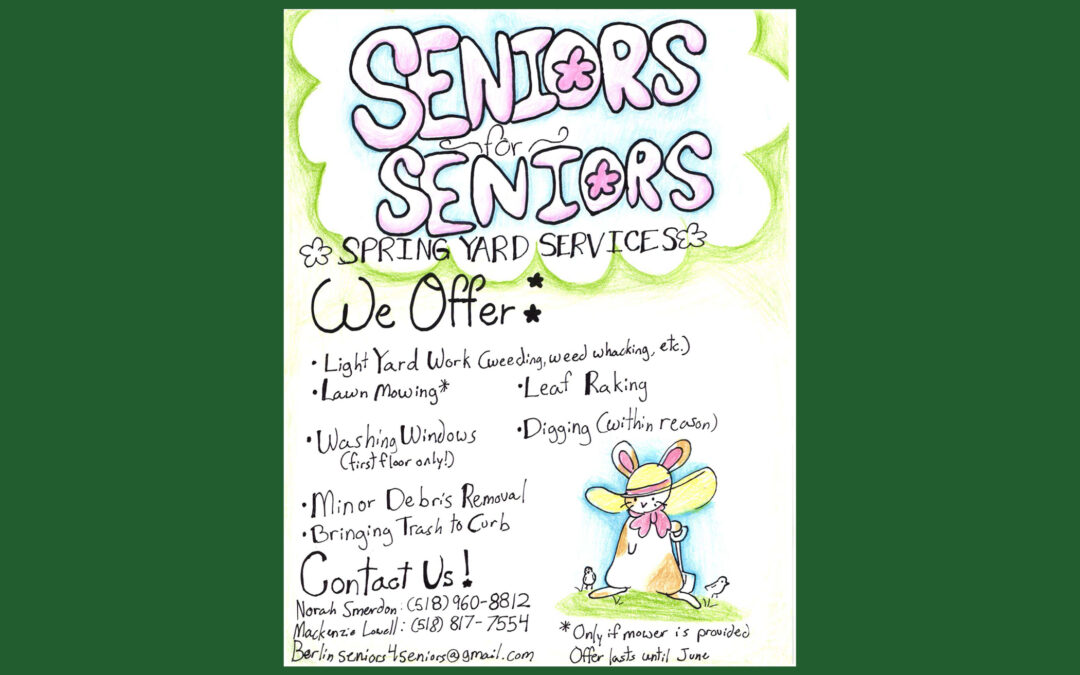 SENIORS
for
SENIORS
SPRING YARD SERVICES
We Offer:
• Light Yard Work (weeding, weed whacking, etc.)
• Lawn Mowing*
• Leaf Raking
• Washing Windows
(first floor only!)
• Digging (within reason)
• Minor Debris Removal
• Bringing Trash to Curb
Contact Us!
Norah Smerdon: (518) 960-8812
Mackenzie Lowell: (518) 817-7554
Berlinseniors4seniors@gmail.com
*Only if mower is provided
Offer lasts until June